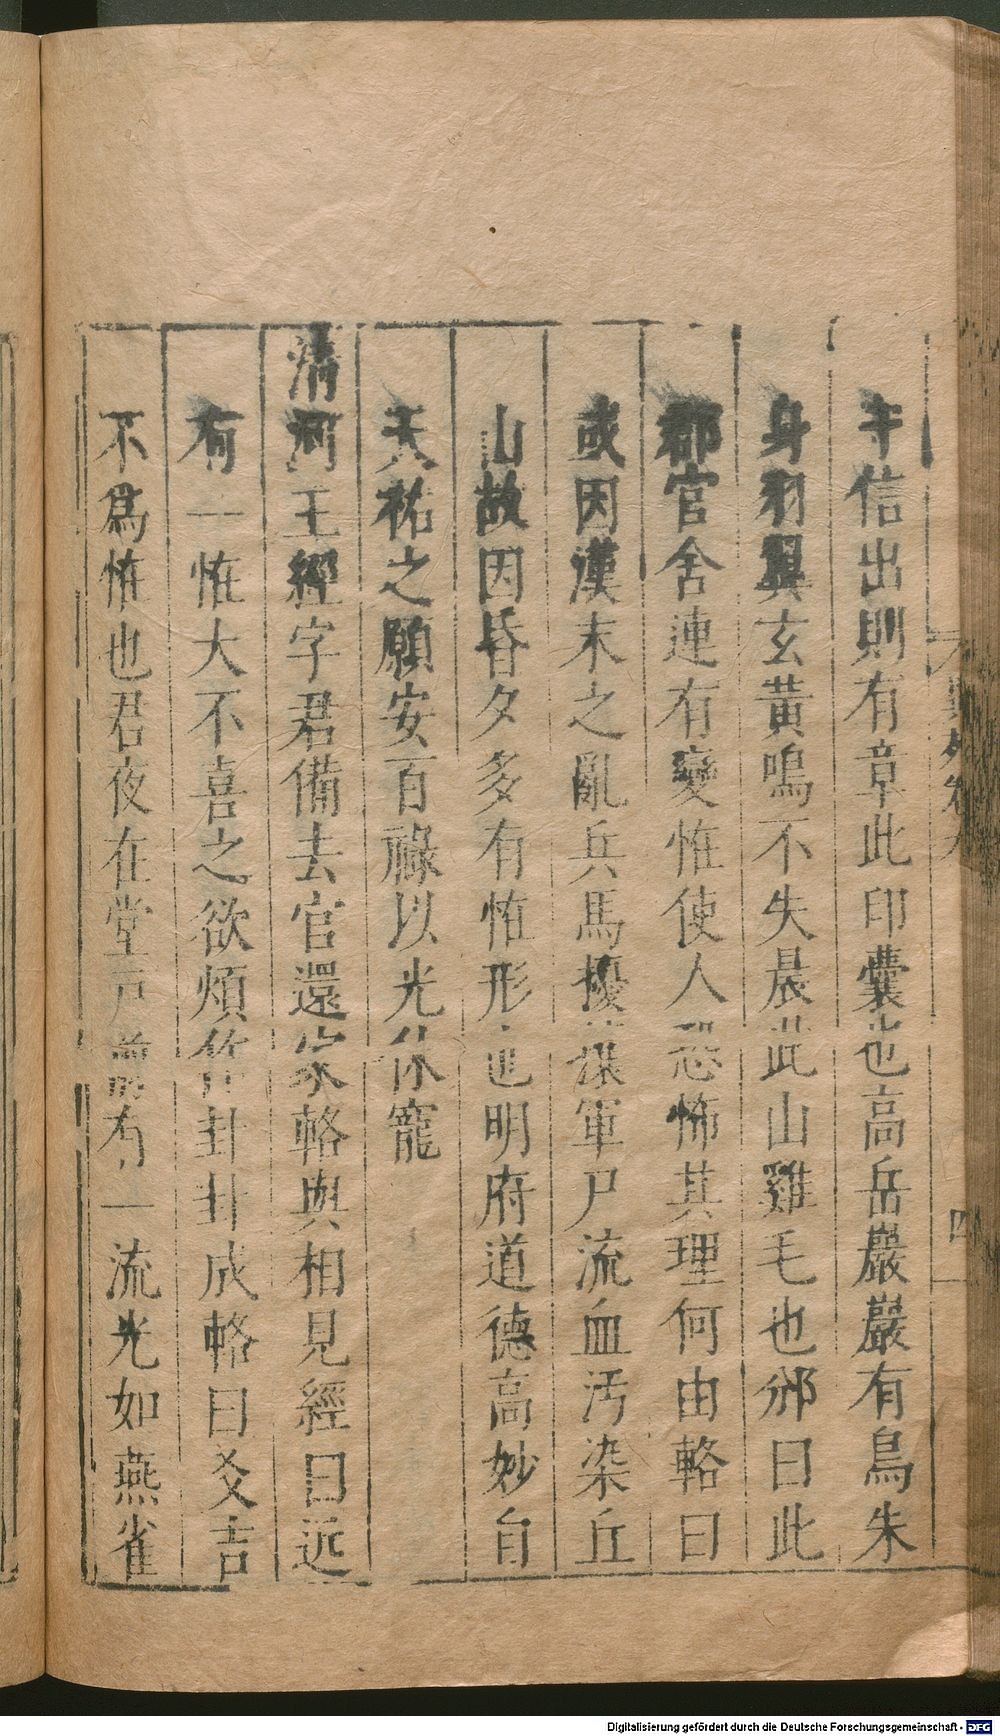 守信出則有章此印囊也高岳巖巖有鳥朱
身羽翼玄黃鳴不失晨此山雞毛也邠曰此
郡官舍連有變恠使人恐怖其理何由輅曰
或因漢末之亂兵馬擾攘軍尸流血汚染丘
山故因昏夕多有恠形也明府道德高妙自
天祐之願安百祿以光休寵
清河王經字君備去官還家輅與相見經曰近
有一恠大不喜之欲煩作卦卦成輅曰爻吉
不爲恠也君夜在堂戸前有一流光如燕雀
四
Digitalisierung gefördert durch die Deutsche Forschungsgemeinschaft - DFG